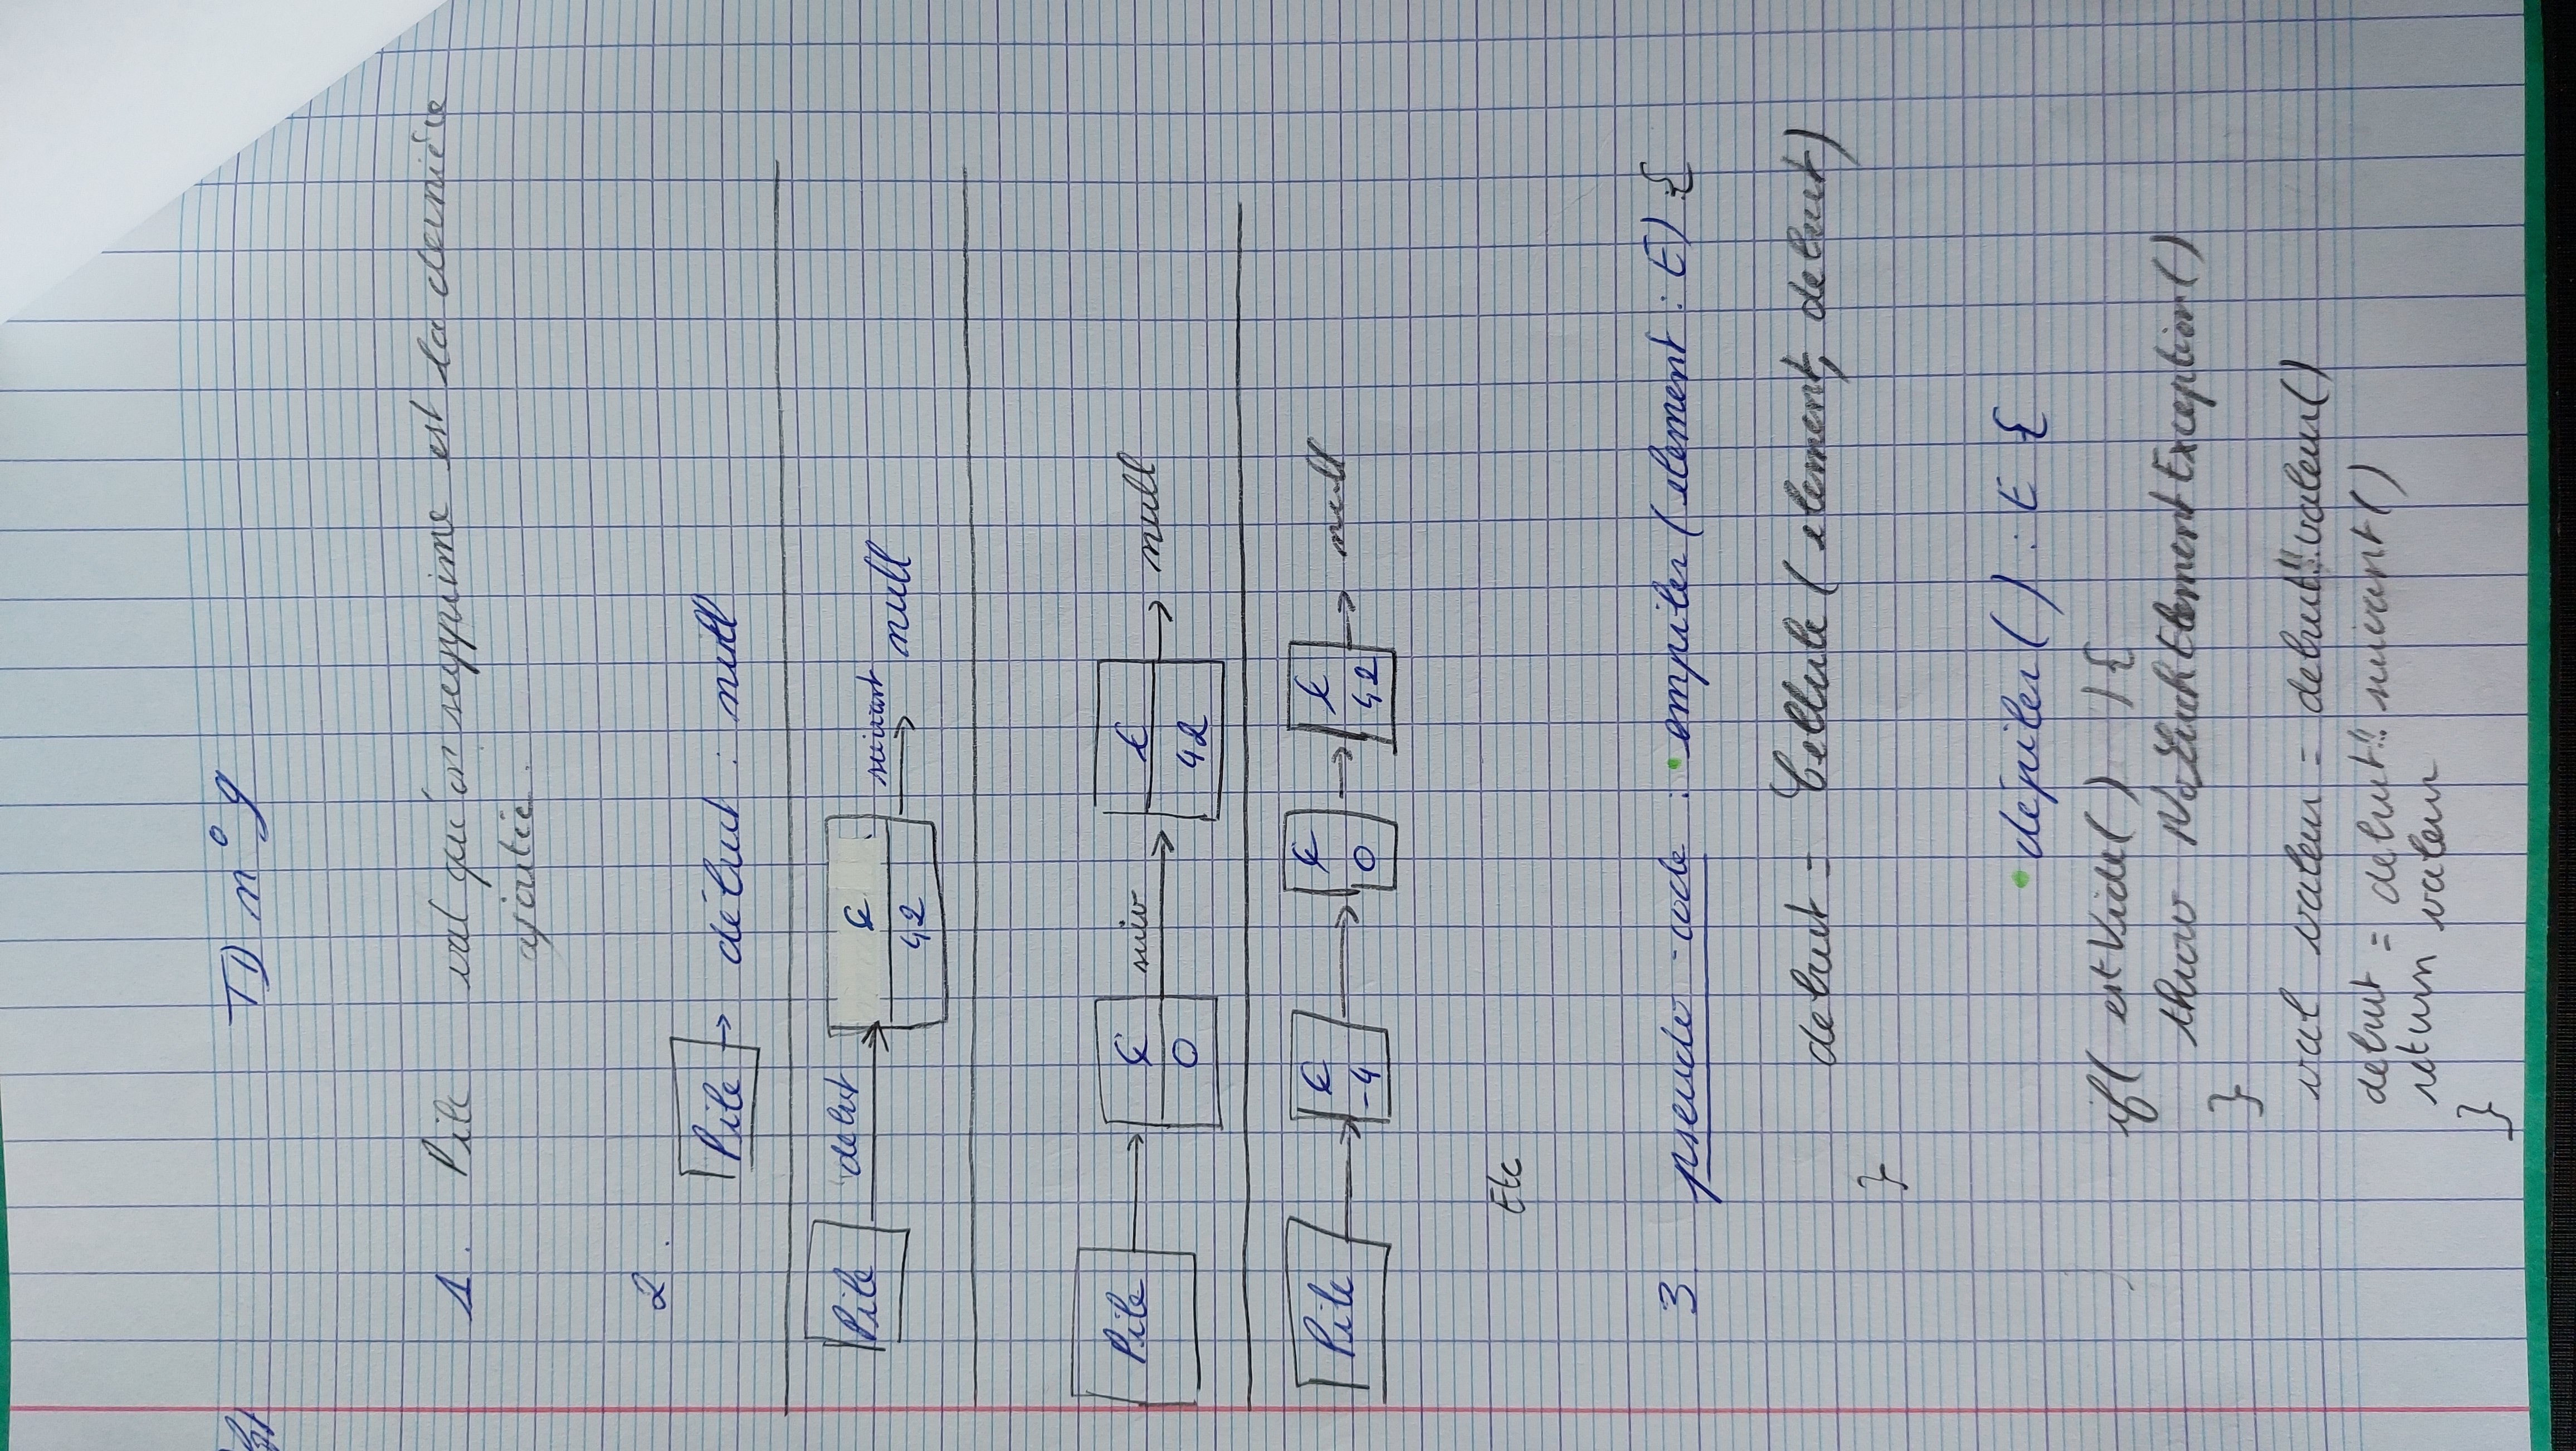 TD n° 9
1. Pile val qu'on supprime est la dernière
ajoutée.
2.
Pile → début : null
Pile début C suivant null
42
Pile C suiv C null
0 42
Pile C C C null
-4 0 42
Etc
3 pseudo-code : • empiler (element : E) {
debut = Cellule ( element, debut)
}
• dépiler ( ) : E {
if( estVide( ) ) {
throw NoSuchElementException ( )
}
val valeur = debut!!.valeur()
debut = debut!!.suivant()
return valeur
}